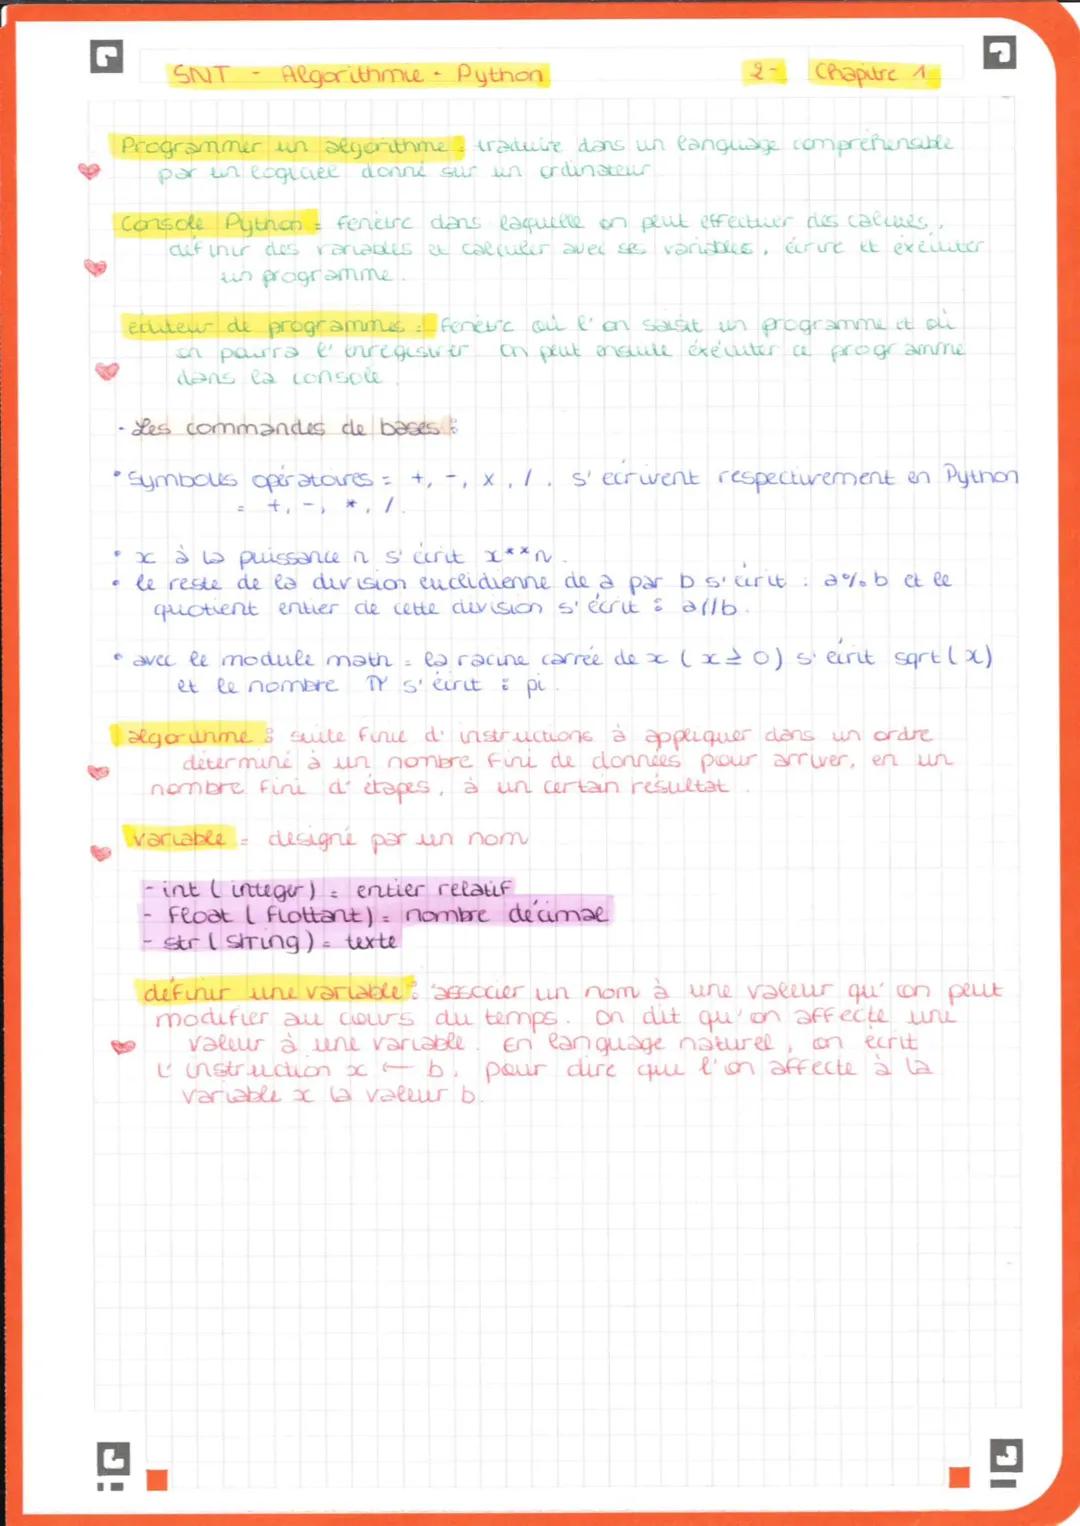 SNT - Algorithmie - Python 2- Chapitre 1
Programmer un algorithme : traduire dans un language compréhensible
par un logiciel donné sur un ordinateur
Console Python : fenêtre dans laquelle on peut effectuer des calculs,
définir des variables et calculer avec ses variables, écrire et exécuter
un programme.
éditeur de programmes : Fenêtre où l'on saisit un programme et où
on pourra l'enregistrer on peut ensuite éxécuter ce programme
dans la console.
- Les commandes de bases :
• Symboles opératoires = +, -, x, /. s'écrivent respectivement en Python
= +, -, *, /.
• x à la puissance n s'écrit x**n.
• le reste de la division euclidienne de a par b s'écrit : a%b et le
quotient entier de cette division s'écrit : a//b.
• avec le module math = la racine carrée de x (x ≥ 0) s'écrit sqrt(x)
et le nombre π s'écrit : pi.
algorithme : suite finie d'instructions à appliquer dans un ordre
déterminé à un nombre fini de données pour arriver, en un
nombre fini d'étapes, à un certain résultat.
variable = designé par un nom
- int (integer) = entier relatif
- Float (flottant) = nombre décimal
- str (string) = texte
définir une variable : associer un nom à une valeur qu'on peut
modifier au cours du temps. On dit qu'on affecte une
valeur à une variable. En language naturel, on écrit
l'instruction x ← b, pour dire que l'on affecte à la
variable x la valeur b.